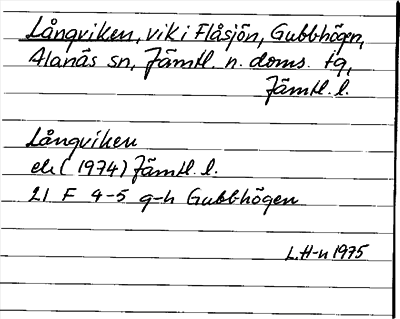 Långviken, vik i Flåsjön, Gubbhögen,
Alanäs sn, Jämtl. n. doms. tg,
Jämtl. l.
Långviken
ek (1974) Jämtl. l.
21 F 4-5 g-h Gubbhögen
L.H-n 1975